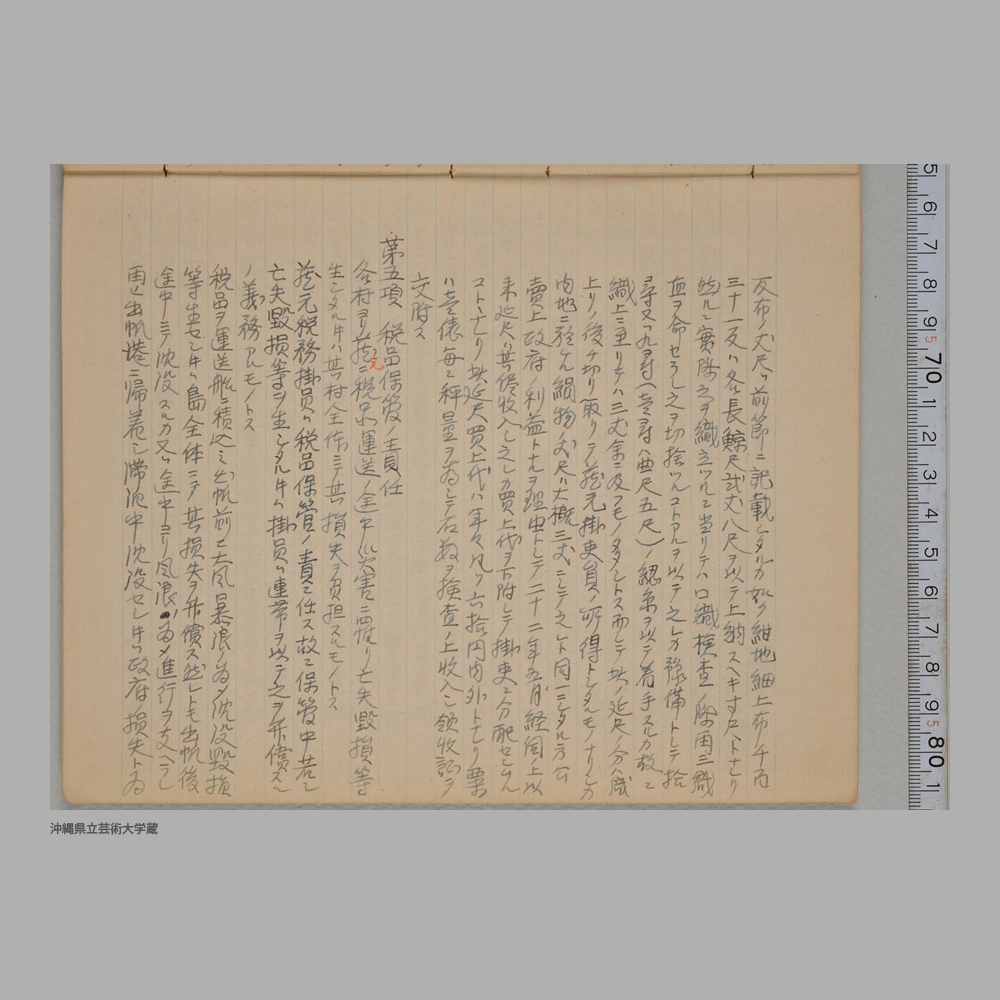 反布ノ丈尺ハ前節ニ記載シタルカ如ク紺地細上布ノ千百
三十一反ハ各長鯨尺弐丈八尺ヲ以テ上納スヘキ寸尺トナレリ
然ルニ実際之ヲ織立ツルニ当リテハロ織検査ノ際両三織
直ヲ命セラレ之ヲ切捨ツルコトアルヲ以テ之レカ予備トシテ拾
尋又ハ九尋(壱尋ハ曲尺五尺)ノ認糸ヲ以テ着手スルカ故ニ
織上ニ至リテハ三丈余ニ及フモノ多シトス而シテ此ノ延尺ノ分ハ織
上リノ後チ切リ取リテ蔵元掛吏員ノ所得トシタルモノナリシカ
内地ニ於ケル絹物ノ丈尺ハ大概三丈ニシテ之レト同一ニシタル方公
売上政府ノ利益トナル理由トシテ二十二年五月経伺ノ上以
来延尺ハ其儘収入シ之レカ買上代ヲ下附シテ掛吏ニ分配セシムル
コトヽナレリ此延尺買上代ハ年々凡ソ六拾円内外トナレリ粟
ハ壱俵毎ニ秤量ヲ為シテ石数ヲ検査ノ上収入シ領収証ヲ
交附ス
第五項 税品保管ノ責任
各村ヨリ蔵元ニ税品運送ノ途中災害ニ罹リ亡失毀損等
生シタルキハ其村全体ニテ其損失ヲ負担スルモノトス
蔵元税務掛員ハ税品保管ノ責ニ任ス故ニ保管中若シ
亡失毀損等ヲ生シタルキハ掛員ハ連帯ヲ以テ之ヲ弁償スル
ノ義務アルモノトス
税品ヲ運送船ニ積込ミ出帆前ニ大風暴浪ノ為メ沈没毀損
等生セシキハ島全体ニテ其損失ヲ弁償ス然レトモ出帆後
途中ニテ沈没スルカ又ハ途中ヨリ風浪ノ為メ進行ヲ支ヘラレ
再ヒ出帆港ニ帰着シ滞泊中沈没セシキハ政府ノ損失トナル